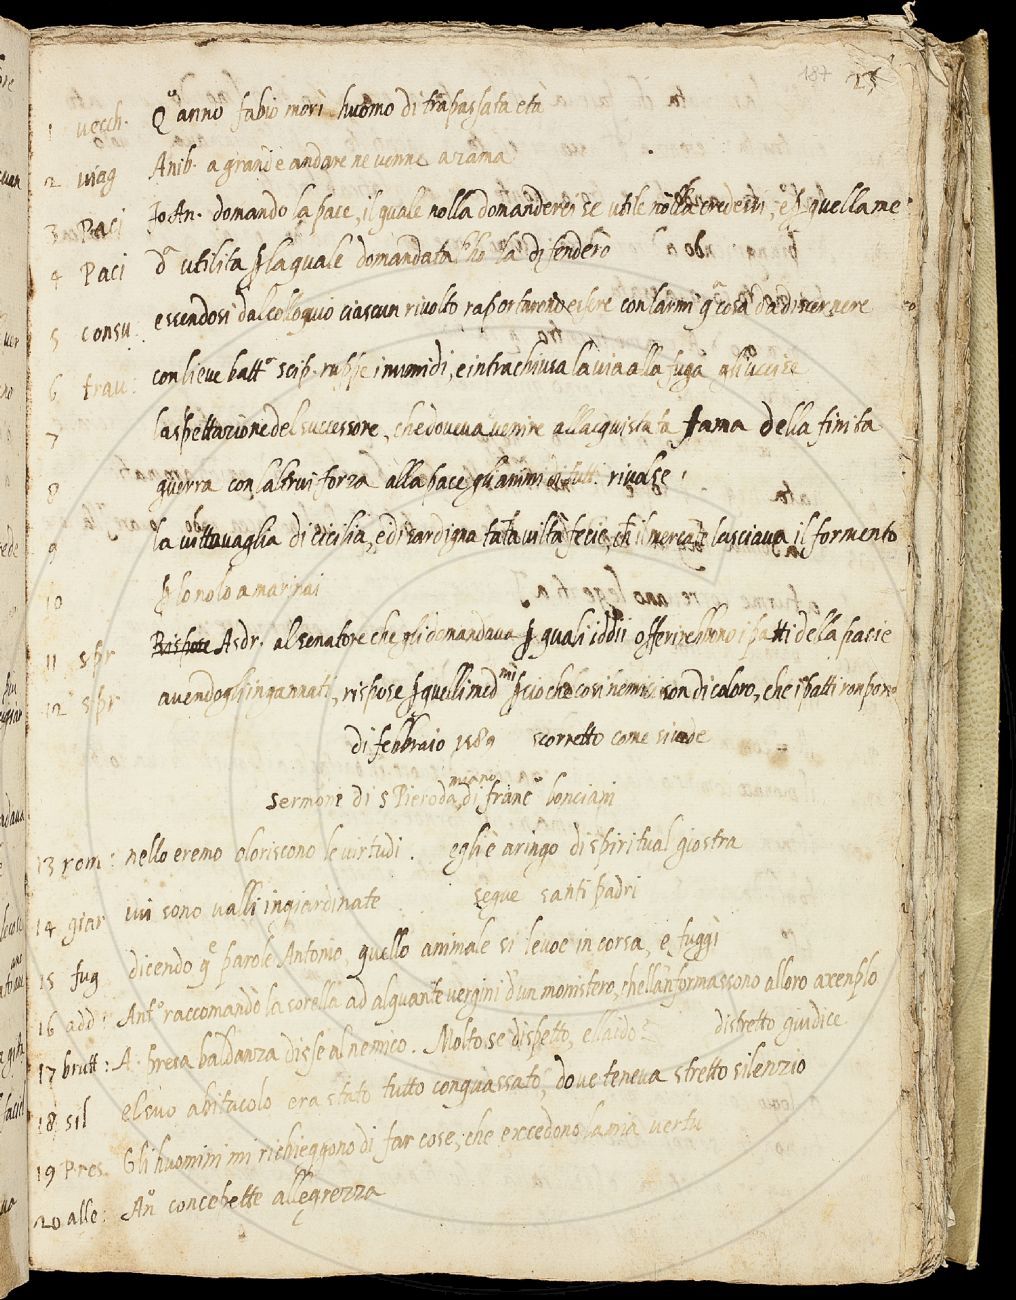 187 25
1 vecch. Qº anno fabio mori huomo di trapassata eta
2 viag Anib. a grande andare ne venne a zama
3 Paci Io An. domando la pace, il quale nolla domanderei se utile nolla credessi, e p quella me
4 Paci dª utilita p la quale domandata l'ho la difendero
5 consu: essendosi dal colloquio ciascun rivolto raportarono essere con l'armi q cosa da discernere
6 trau: con lieve battª scip. ruppe i numidi, e intrachiusa la via alla fuga gli uccise
7 l'aspettazione del successore, che doveva venire all acquistata fama della finita
8 guerra con l'altrui forza alla pace gli animi di tutti rivolse.
9 la vittovaglia di cicilia, e di sardigna tāta viltà fecie, ch il mercatē lasciava il formento
10 p lo nolo a marinai
11 spr Rispose Asdr. al senatore che gli domandava p quali iddii offerirebbono i patti della pacie
12 spr avendogli ingannati, rispose p quelli med mi p cio che cosi nemici son di coloro, che i patti ronpono
di febbraio 1589 scorretto come si vede
Sermone di s Piero da meano di francº lonciani
13 rom: nello eremo oloriscono le virtudi. egli è aringo di spiritual giostra
14 giar ivi sono valli ingiardinate segue santi padri
15 fug dicendo qe parole Antonio, quello animale si levoe in corsa, e fuggì
16 add: Antº raccomandò la sorella ad alquante vergini d'un monistero, che llā nformassono alloro axenplo
17 brutt: A. presa baldanza disse al nemico. Molto se dispetto, e laido distretto giudice
18 sil el suo abitacolo era stato tutto conquassato, dove teneva stretto silenzio
19 Pres Gli huomini mi richieggono di far cose, che excedono la mia vertu
20 alle: Anº concepette allegrezza